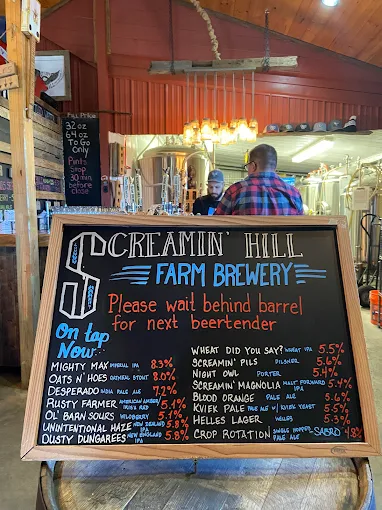 Fill Price
32 oz
64 oz
To Go
Only
Pints
Stop
30 min
before
close
SCREAMIN' HILL
FARM BREWERY
Please wait behind barrel
for next beertender
On tap
Now...
MIGHTY MAX IMPERIAL IPA 8.3%
OATS N' HOES OATMEAL STOUT 8.0%
DESPERADO INDIA PALE ALE 7.2%
RUSTY FARMER AMERICAN AMBER IRISH RED 5.1%
OL' BARN SOURS WILDBERRY 5.1%
UNINTENTIONAL HAZE NEW ZEALAND IPA 5.8%
DUSTY DUNGAREES NEW ENGLAND IPA 5.8%
WHAT DID YOU SAY? WHEAT IPA 5.5%
SCREAMIN' PILS PILSNER 5.6%
NIGHT OWL PORTER 5.4%
SCREAMIN' MAGNOLIA MALT FORWARD IPA 5.4%
BLOOD ORANGE PALE ALE 5.6%
KVIEK PALE PALE ALE W/ KVIEK YEAST 5.5%
HELLES LAGER HELLES 5.3%
CROP ROTATION SINGLE HOPPED PALE ALE SABRO 4.8%